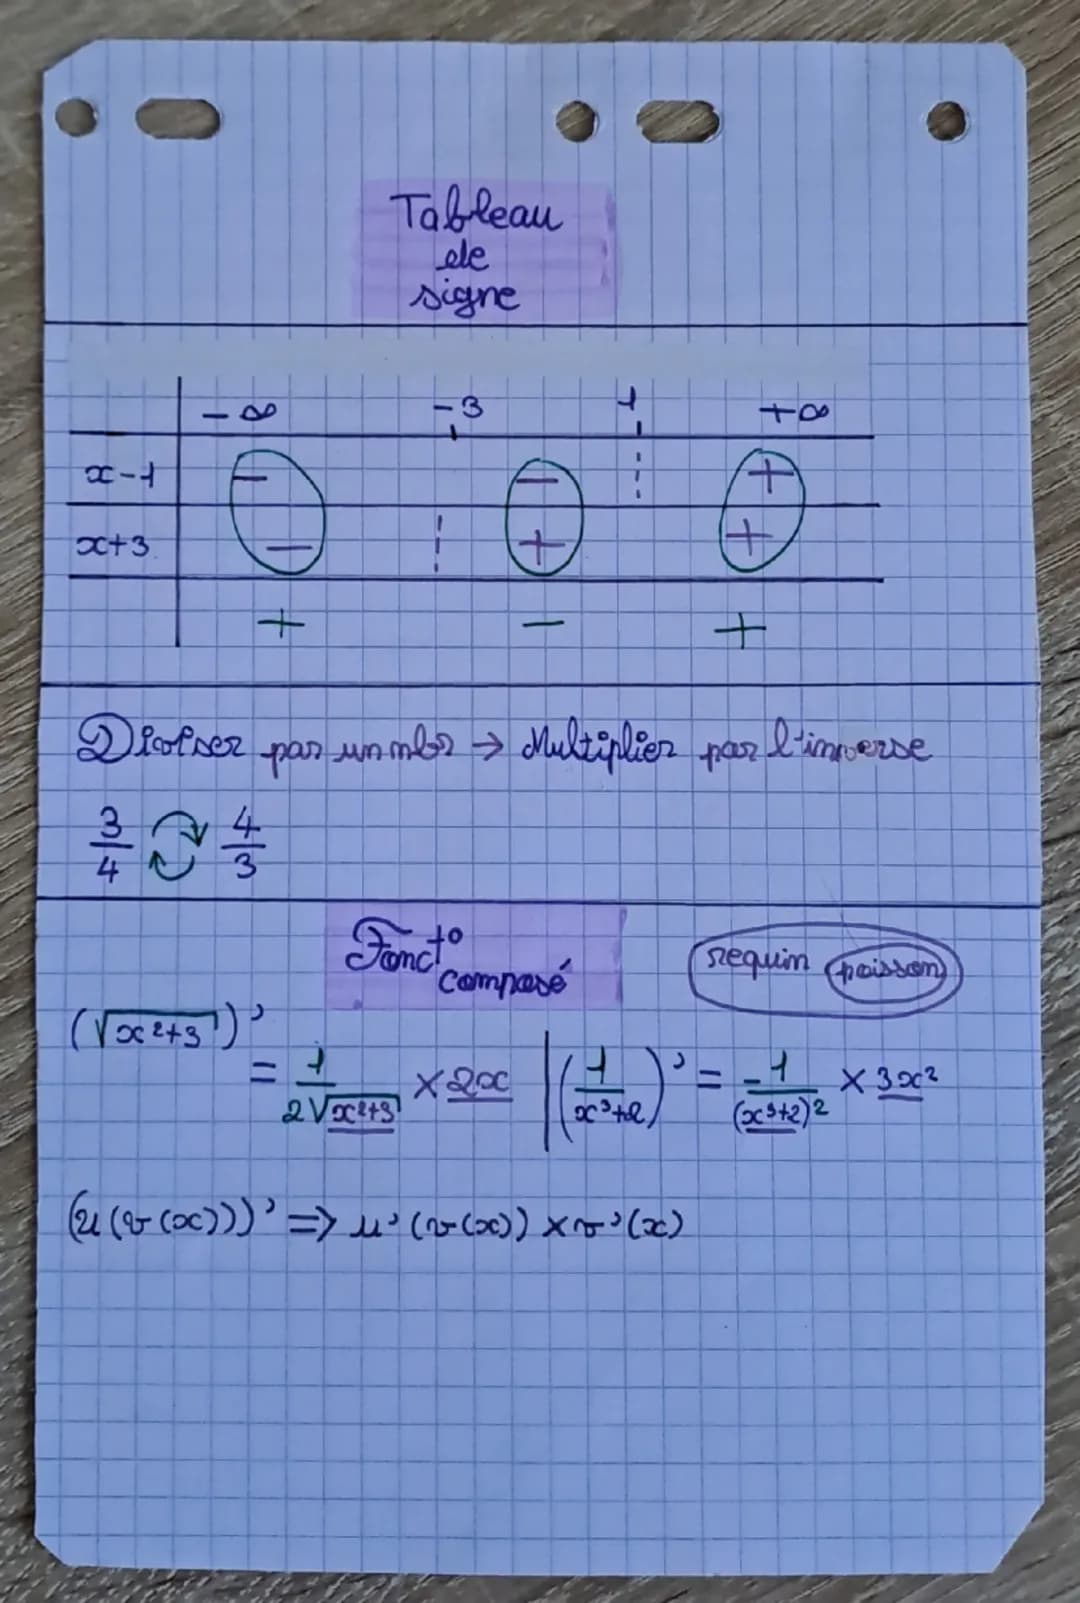 Tableau
de
signe
-∞ -3 1 +∞
x-1 - - +
x+3 - + +
+ - +
Diviser par un nbr → Multiplier par l'inverse
3/4 4/3
Fonct° composé
requin poisson
(√(x²+3))' = 1/(2√(x²+3)) × 2x | (1/(x³+2))' = -1/(x³+2)² × 3x²
(u(v(x)))' => u'(v(x)) × v'(x)